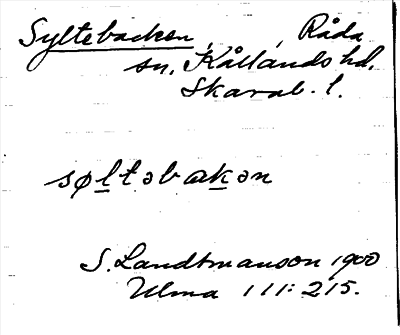 Syltebacken, Råda
sn, Kållands hd.
Skarab. l.
søltəbakən
S. Landtmanson 1900
Ulma 111: 215.